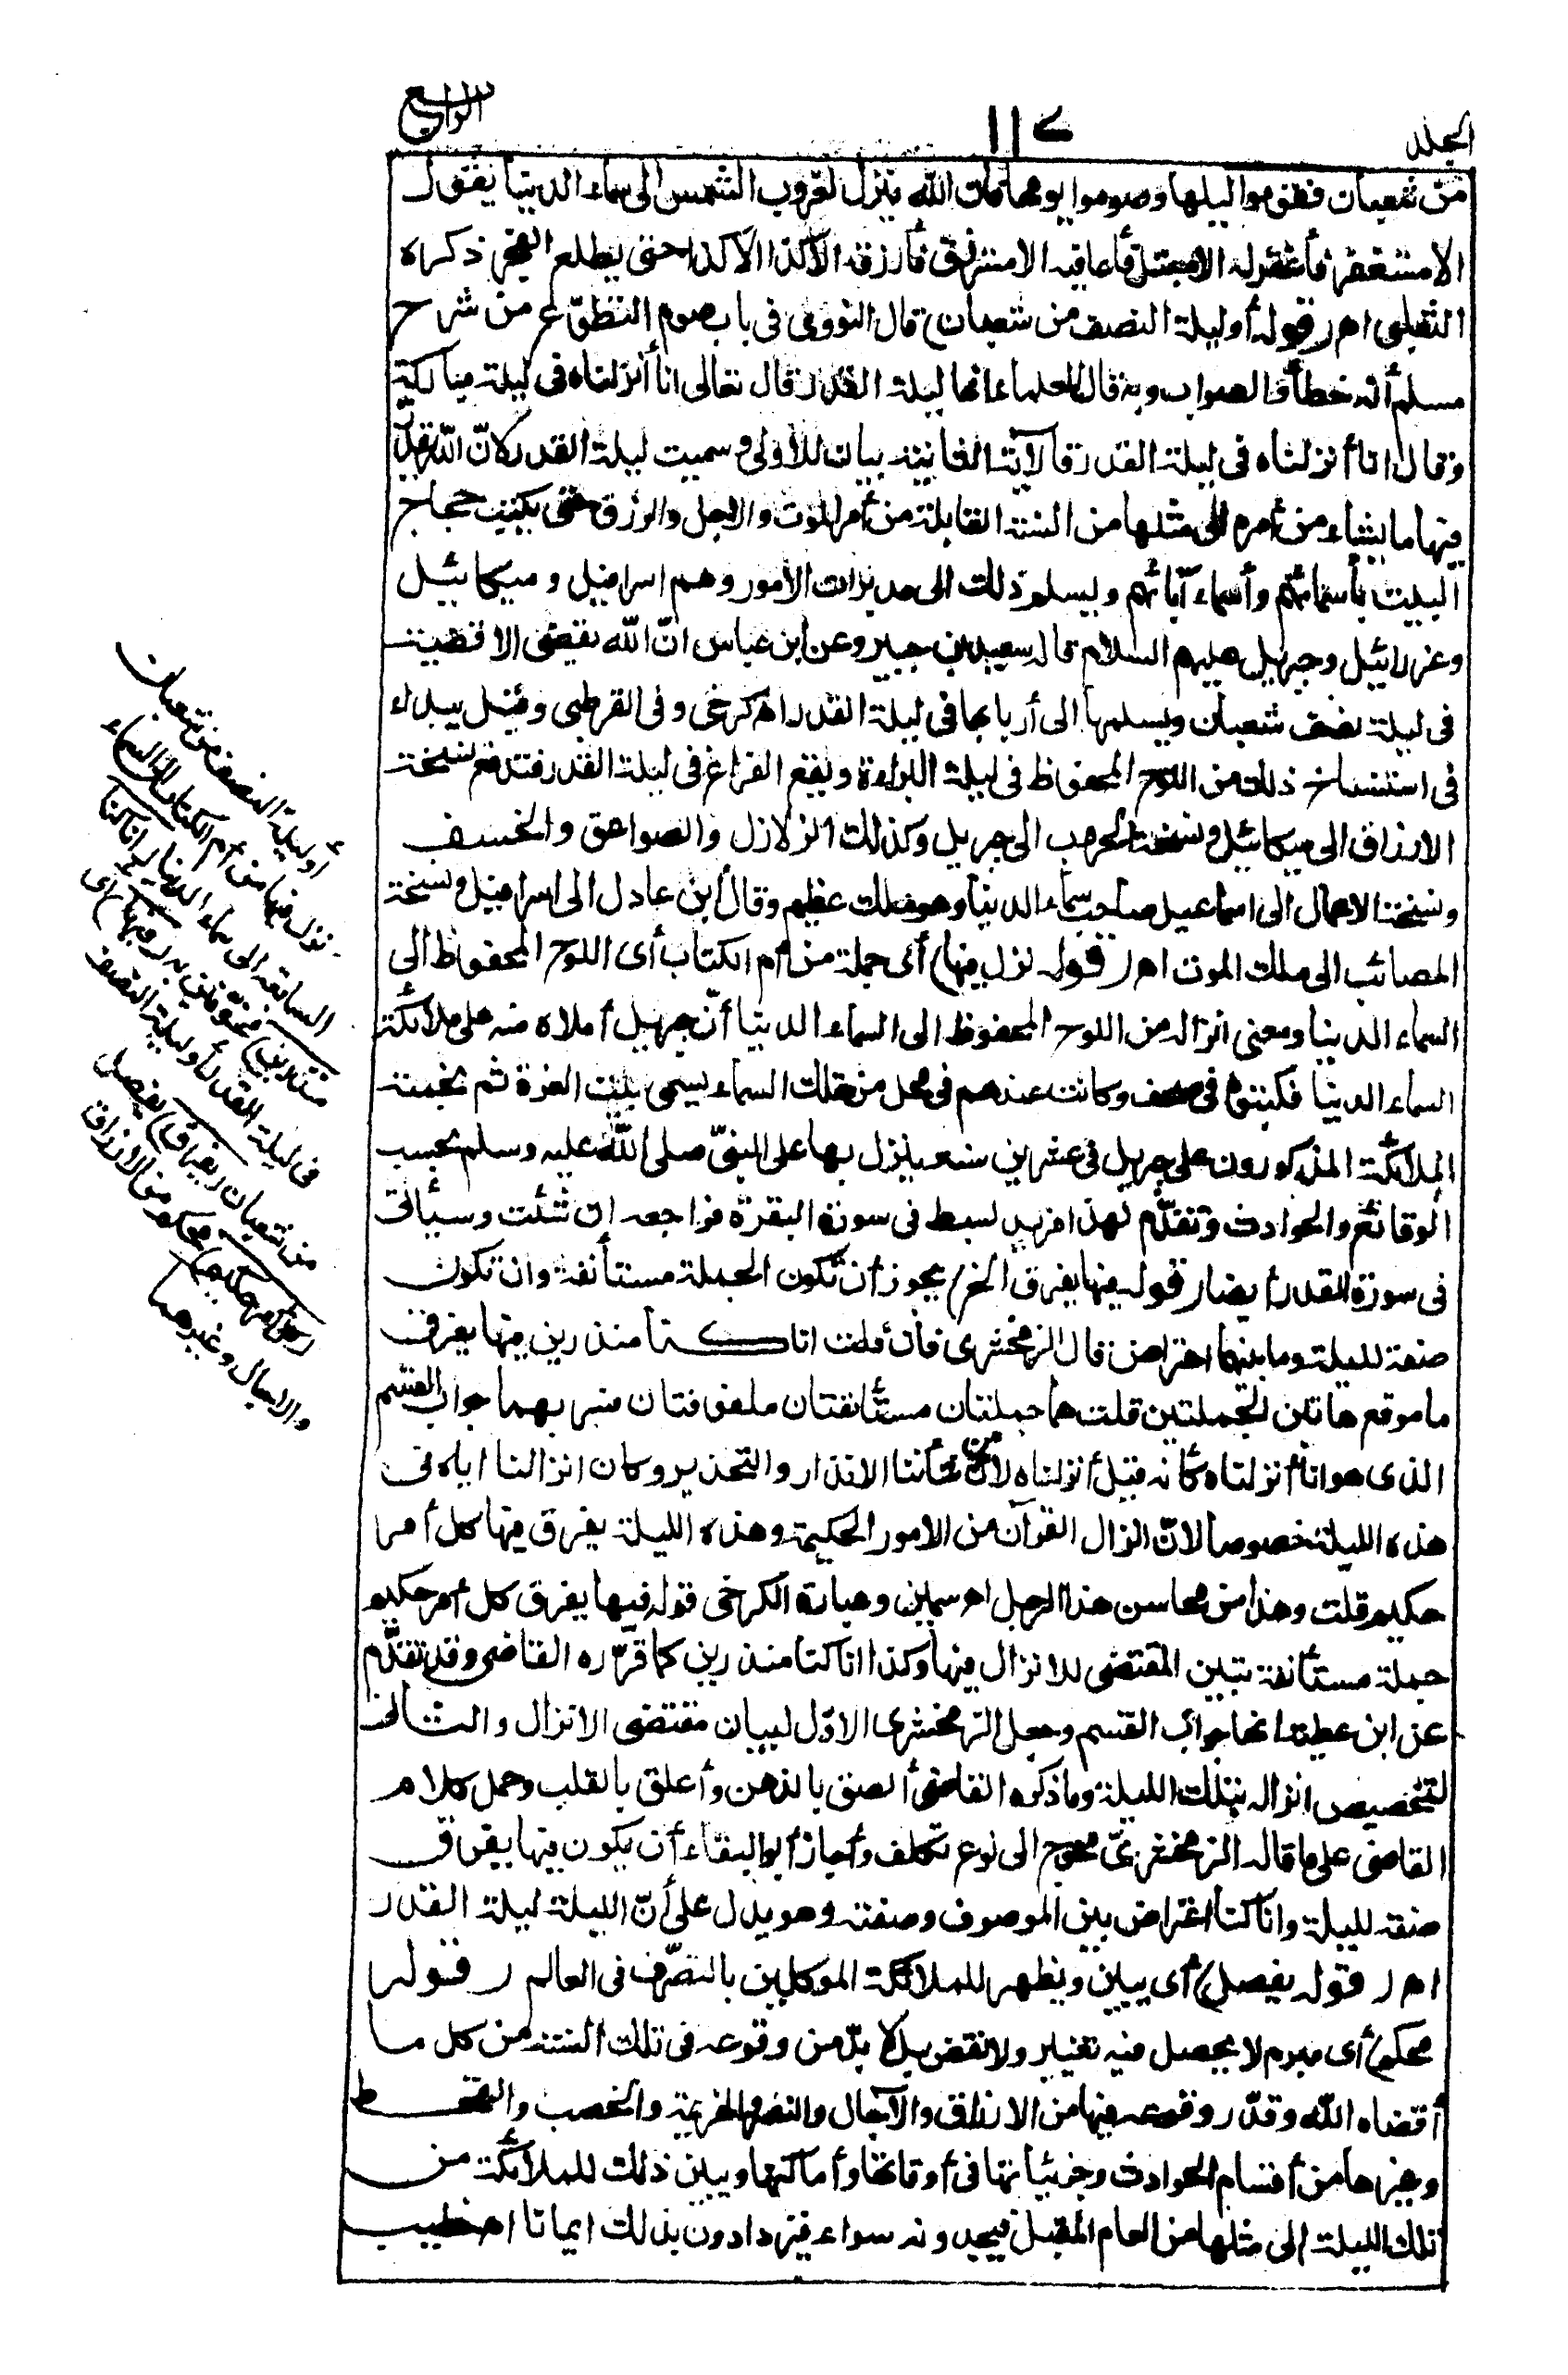 المجلد
١١٧
الرابع
من شعبان فقوموا ليلها وصوموا يومها فان الله ينزل لغروب الشمس الى سماء الدنيا يقول
الا مستغفر فأغفر له الا مبتلى فأعافيه الا مسترزق فأرزقه الا كذا الا كذا حتى يطلع الفجر ذكراه
الثعلبى اه (قوله أو ليلة النصف من شعبان) قال النووى فى باب صوم التطوّع من شرح
مسلم أنه خطأ والصواب وبه قال العلماء انها ليلة القدر قال تعالى انا أنزلناه فى ليلة مباركة
وقال انا أنزلناه فى ليلة القدر فالآية الثانية بيان للأولى وسميت ليلة القدر لانّ الله يقدّر
فيها ما يشاء من أمره الى مثلها من السنة القابلة من أمر الموت والاجل والرزق حتى يكتب حجاج
البيت بأسمائهم وأسماء آبائهم ويسلم ذلك الى مدبرات الأمور وهم اسرافيل وميكائيل
وعزرائيل وجبريل عليهم السلام قال سعيد بن جبير وعن ابن عباس انّ الله يقضى الاقضية
فى ليلة نصف شعبان ويسلمها الى أربابها فى ليلة القدر اه كرخى وفى القرطبى وقيل يبدأ
فى استنساخ ذلك من اللوح المحفوظ فى ليلة البراءة ويقع الفراغ فى ليلة القدر فتدفع نسخة
الارزاق الى ميكائيل ونسخة الحرب الى جبريل وكذلك الزلازل والصواعق والخسف
ونسخة الاعمال الى اسماعيل صاحب سماء الدنيا وهو ملك عظيم وقال ابن عادل الى اسرافيل ونسخة
المصائب الى ملك الموت اه (قوله نزل فيها) أى جملة من أم الكتاب أى اللوح المحفوظ الى
السماء الدنيا ومعنى انزاله من اللوح المحفوظ الى السماء الدنيا أنّ جبريل أملاه منه على ملائكة
السماء الدنيا فكتبوه فى صحف وكانت عندهم فى محل من تلك السماء يسمى بيت العزة ثم نجمته
الملائكة المذكورون على جبريل فى عشرين سنة ينزل بها على النبىّ صلى الله عليه وسلم بحسب
الوقائع والحوادث وتقدّم لهذا مزيد بسط فى سورة البقرة فراجعه ان شئت وسيأتى
فى سورة القدر أيضا (قوله فيها يفرق الخ) يجوز أن تكون الجملة مستأنفة وان تكون
صفة لليلة وما بينهما اعتراض قال الزمخشرى فان قلت انا كنا منذرين فيها يفرق
ما موقع هاتين الجملتين قلت هما جملتان مستأنفتان ملفوفتان فسر بهما جواب القسم
الذى هو انا أنزلناه كأنه قيل أنزلناه لان من شأننا الانذار والتحذير وكان انزالنا اياه فى
هذه الليلة خصوصا لانّ انزال القرآن من الامور الحكيمة وهذه الليلة يفرق فيها كل أمر
حكيم قلت وهذا من محاسن هذا الرجل اه سمين وعبارة الكرخى قوله فيها يفرق كل أمر حكيم
جملة مستأنفة تبين المقتضى للانزال فيها وكذا انا كنا منذرين كما قرّره القاضى وقد تقدّم
عن ابن عطية انها جواب القسم وجعل الزمخشرى الاوّل لبيان مقتضى الانزال والثانى
لتخصيص انزاله بتلك الليلة وما ذكره القاضى ألصق بالذهن وأعلق بالقلب وحمل كلام
القاضى على ما قاله الزمخشرىّ محوج الى نوع تكلف وأجاز أبو البقاء أن يكون فيها يفرق
صفة لليلة وانا كنا اعتراض بين الموصوف وصفته وهو يدل على أنّ الليلة ليلة القدر
اه (قوله يفصل) أى يبين ويظهر للملائكة الموكلين بالتصرّف فى العالم (قوله
محكم) أى مبرم لا يحصل فيه تغيير ولا نقض بل لا بدّ من وقوعه فى تلك السنة من كل ما
أقضاه الله وقدّر وقوعه فيها من الارزاق والآجال والنصر والهزيمة والخصب والقحط
وغيرها من أقسام الحوادث وجزئياتها فى أوقاتها وأماكنها ويبين ذلك للملائكة من
تلك الليلة الى مثلها من العام المقبل فيجدونه سواء فيزدادون بذلك ايمانا اه خطيب
أو ليلة النصف من شعبان
نزل فيها من أم الكتاب من السماء
السابعة الى سماء الدنيا (انا كنا
منذرين) مخوّفين به (فيها) أى
فى ليلة القدر أو ليلة النصف
من شعبان (يفرق) يفصل
(كل أمر حكيم) محكم من الارزاق
والآجال وغيرهما